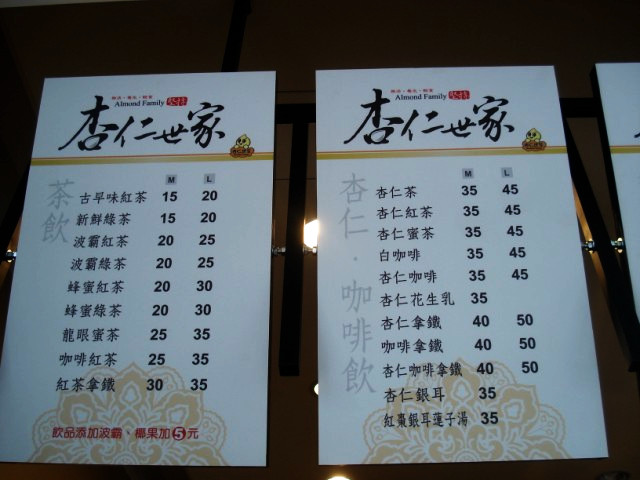 Almond Family
杏仁世家
茶飲
M L
古早味紅茶 15 20
新鮮綠茶 15 20
波霸紅茶 20 25
波霸綠茶 20 25
蜂蜜紅茶 20 30
蜂蜜綠茶 20 30
龍眼蜜茶 25 35
咖啡紅茶 25 35
紅茶拿鐵 30 35
飲品添加波霸、椰果加5元
Almond Family
杏仁世家
杏仁·咖啡飲
M L
杏仁茶 35 45
杏仁紅茶 35 45
杏仁蜜茶 35 45
白咖啡 35 45
杏仁咖啡 35 45
杏仁花生乳 35
杏仁拿鐵 40 50
咖啡拿鐵 40 50
杏仁咖啡拿鐵 40 50
杏仁銀耳 35
紅棗銀耳蓮子湯 35